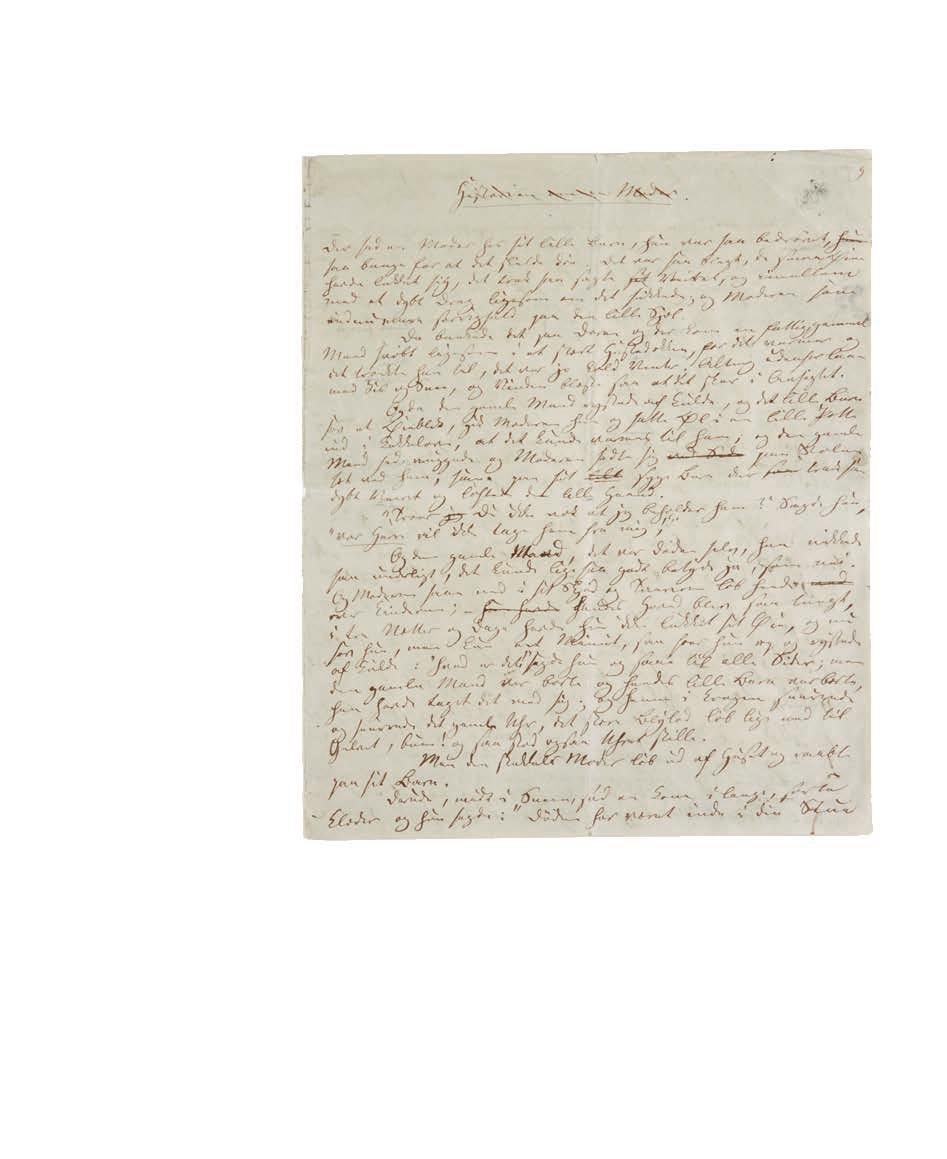 Historien om en Moder.
9
Der sad en Moder hos sit lille Barn, hun var saa bedrøvet, hun
saa bange for at det skulde døe. Det var saa blegt, de smaa Øine
havde lukket sig, det trak saa sagte sit Veiret, og imellem
med et dybt Drag ligesom om det sukkede; og Moderen saae
endnu mere sørgeligt paa den lille Sjæl.
Da bankede det paa Døren og der kom en fattig, gammel
Mand svøbt ligesom i et stort Hestedækken, for det varmer og
det trængte han til, det var jo kold Vinter. Alting udenfor laae
med Iis og Snee, og Vinden blæste saa at det skar i Ansigtet.
Og da den gamle Mand rystede af Kulde, og det lille Barn
sov et Øieblik, gik Moderen hen og satte Øl i en lille Potte
ind i Kakkelovnen, at det kunde varmes til ham, og den gamle
Mand sad, vuggede og Moderen satte sig ved paa Stolen
tæt ved ham, saae paa sit lille syge Barn der trak saa
dybt Veiret og løftede den lille Haand.
"Troer Du ikke nok at jeg beholder ham? sagde hun,
"vor Herre vil ikke tage ham fra mig!"
Og den gamle Mand, det var Døden selv, han nikkede
saa underligt, det kunde lige saa godt betyde ja, som nei.
Og Moderen saae ned i sit Skjød og Taarerne løb hende ned
over Kinderne; – hun havde hendes Hoved blev saa tungt,
i tre Nætter og Dage havde hun ikke lukket sit Øie, og nu
sov hun, men kun eet Minut, saa foer hun op og rystede
af Kulde: "hvad er det!" sagde hun og saae til alle Sider; men
den gamle Mand var borte og hendes lille Barn var borte,
han havde taget det med sig; og henne i Krogen snurrede
og snurrede det gamle Uhr, det store Blylod løb lige ned til
Gulvet, bum! og saa stod ogsaa Uhret stille.
Men den stakkels Moder løb ud af Huset og raabte
paa sit Barn.
Derude, midt i Sneen, sad en Kone i lange, sorte
Klæder og hun sagde: "Døden har været inde i din Stue